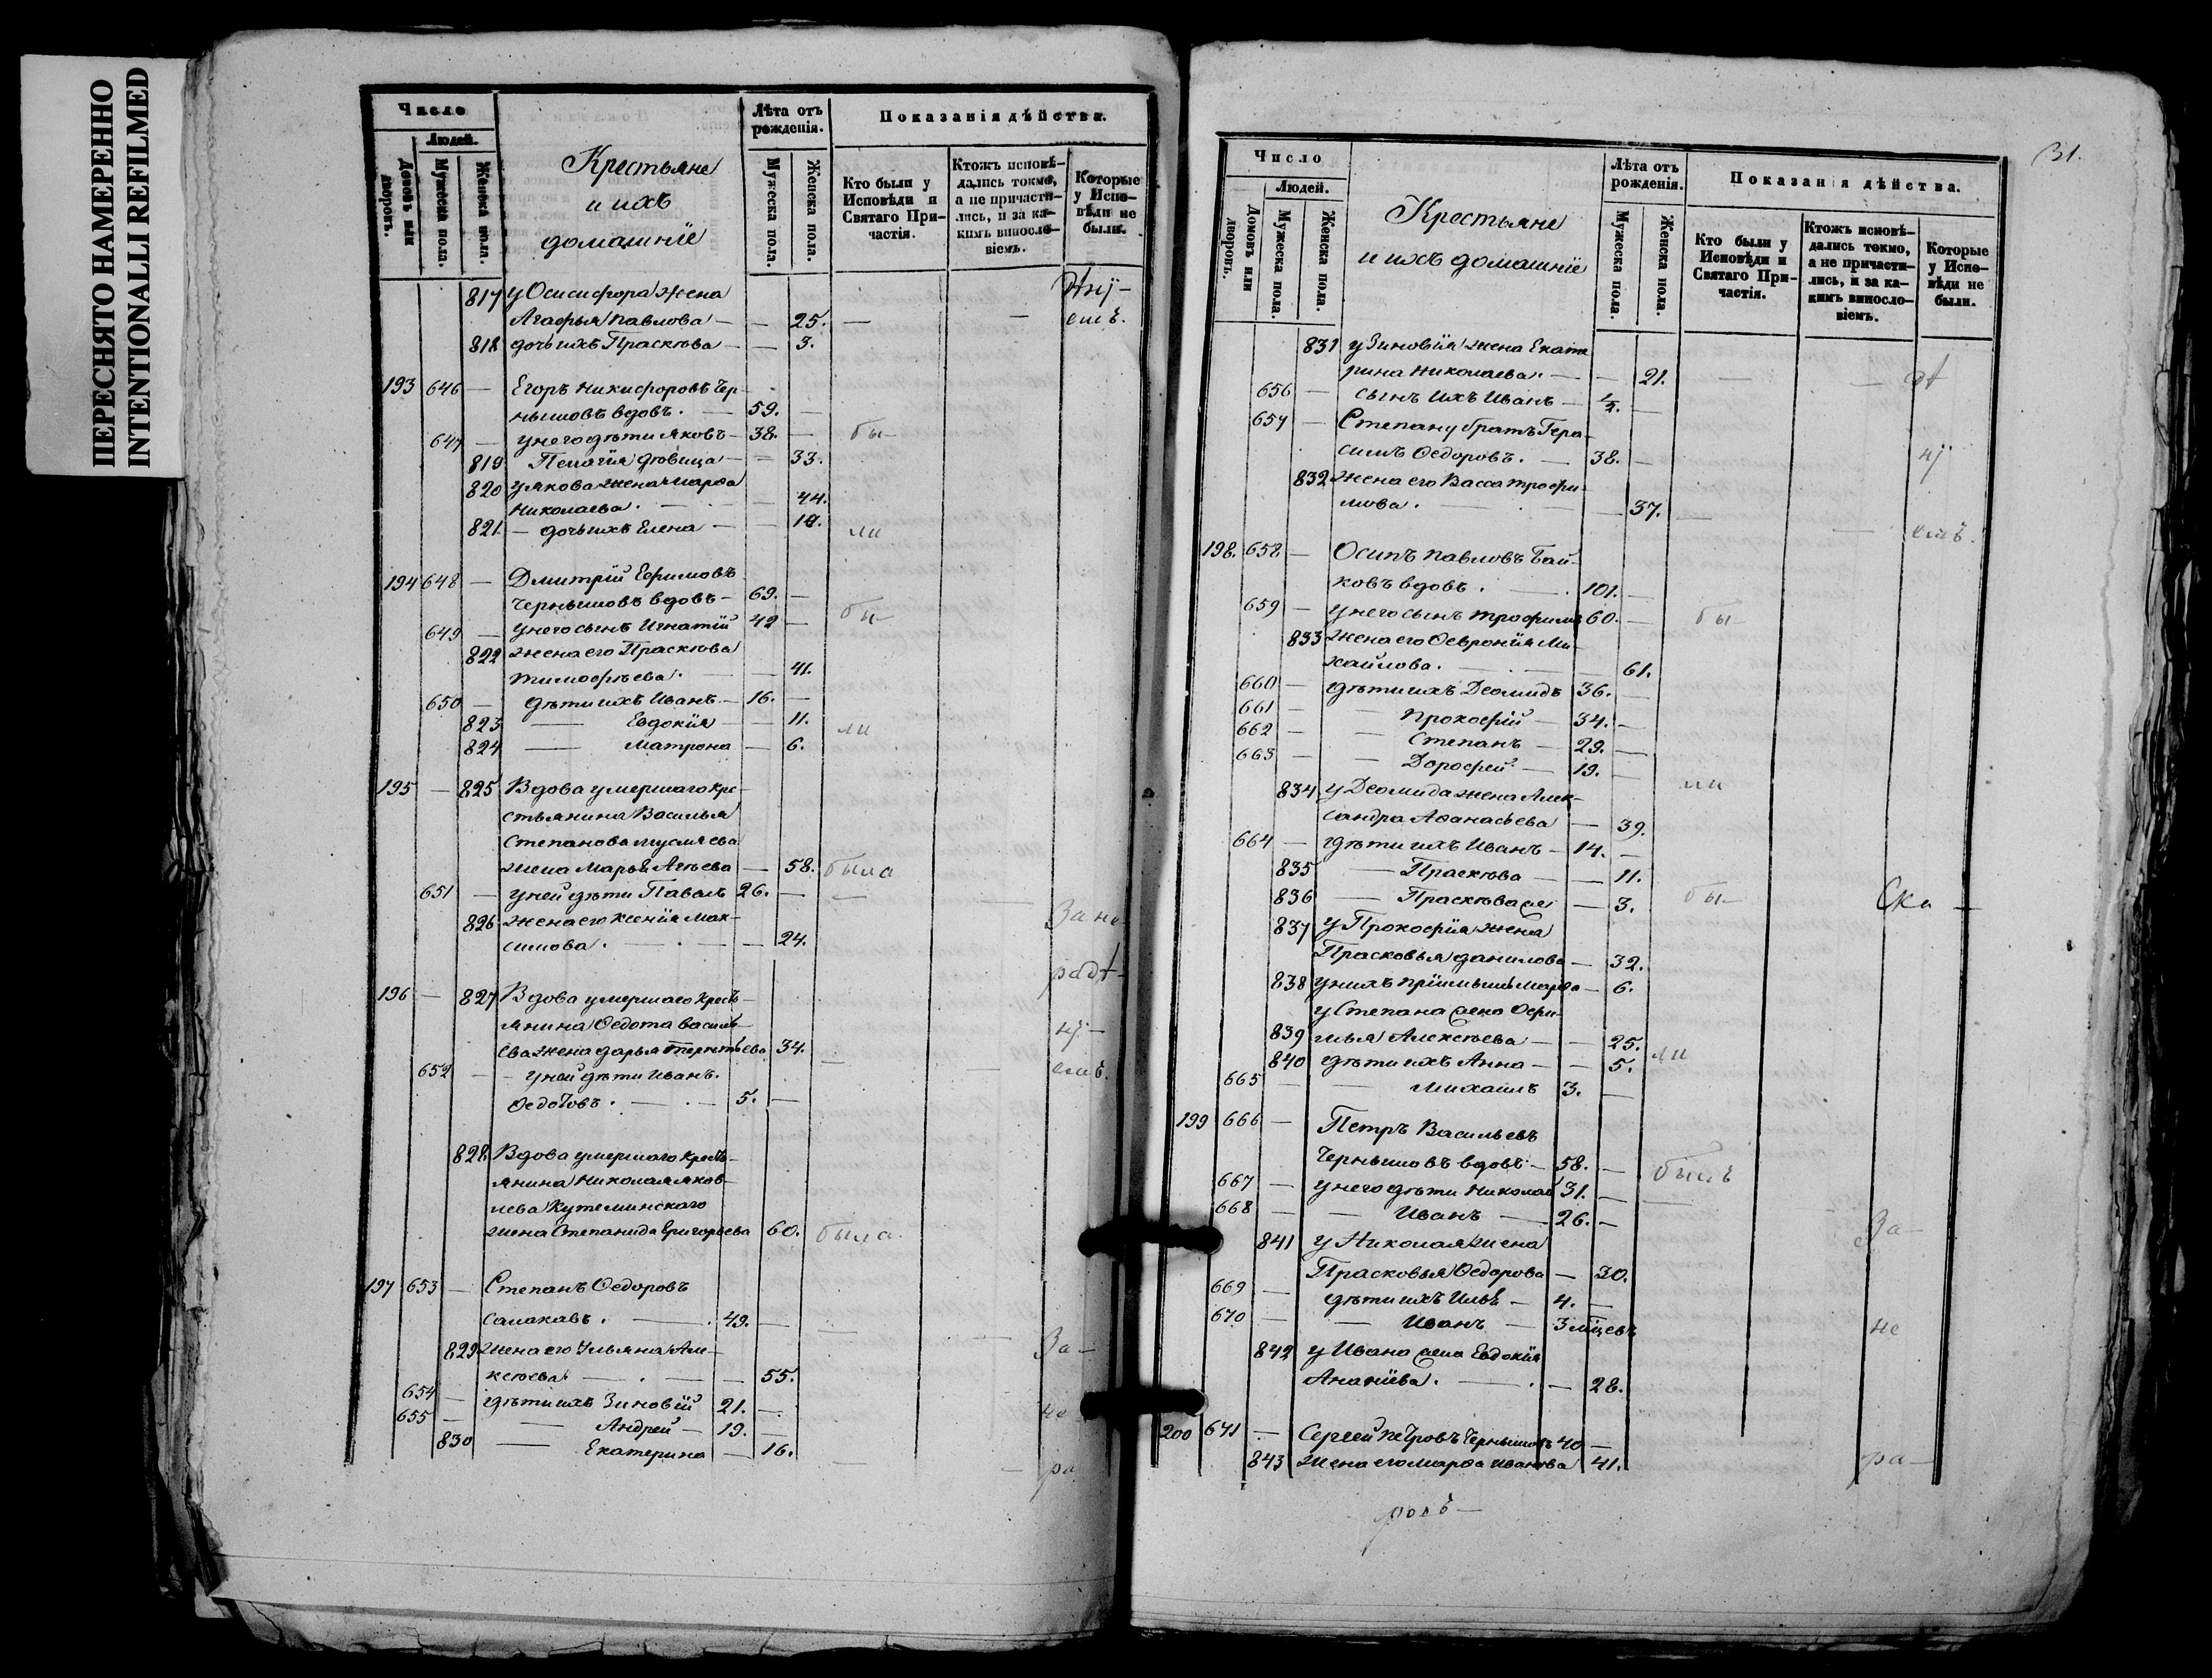 ПЕРЕСНЯТО НАМЕРЕННО
INTENTIONALLI REFILMED
Число
Людей.
Домовъ или дворовъ.
Мужеска пола.
Женска пола.
Крестьяне
и ихъ
домашніе
Лѣта отъ рожденія.
Мужеска пола.
Женска пола.
Показанія дѣйства.
Кто были у Исповѣди и Святаго Причастія.
Ктожъ исповѣдались токмо, а не причастились, и за какимъ винословіемъ.
Которые у Исповѣди не были.
817 у Осисифора жена
Агафья Павлова — — 25. — — емъ.
818 дочь ихъ Праскѣва — — 3.
193 646 — Егоръ Никифоровъ Чер-
нышовъ вдовъ. — 59. —
647 — у него дѣти Яковъ — 38. — бы-
819 Пелагія дѣвица — — 33.
820 у Якова жена Марѳа
Николаева. — — 44.
821 — дочь ихъ Елена — — 10. ли
194 648 — Дмитрій Ефимовъ
Чернышовъ вдовъ — 69. —
649 — у него сынъ Игнатій 42 — бы-
822 жена его Праскѣва
Тимофѣева. — — 41.
650 — дѣти ихъ Иванъ — 16. —
823 — Евдокія — — 11. ли
824 — Матрона — 6.
195 — 825 Вдова умершаго кре-
стьянина Василья
Степанова
жена Марья Агѣева — 58. была
651 — у ней дѣти Павелъ 26. — — —
826 жена его Ксенія Мак- За не
симова. — — 24.
радѣ-
196 — 827 Вдова умершаго кресть-
янина Ѳедота Василь- ні-
ева жена Дарья Терентьева 34.
652 — у ней дѣти Иванъ. — — емъ.
Ѳедотовъ. — 5. —
828 Вдова умершаго кресть-
янина Николая Яков-
лева Кутеминскаго
жена Степанида Григорьева 60. была.
197 653 — Степанъ Ѳедоровъ
49. — — —
829 жена его Ульяна Але- За-
ксѣева — — 55.
654 — дѣти ихъ Зиновій 21. — не
655 — — Андрей — 19. —
830 — Екатерина — 16. — — ра
31.
Число
Людей.
Домовъ или дворовъ.
Мужеска пола.
Женска пола.
Крестьяне
и ихъ домашніе
Лѣта отъ рожденія.
Мужеска пола.
Женска пола.
Показанія дѣйства.
Кто были у Исповѣди и Святаго Причастія.
Ктожъ исповѣдались токмо, а не причастились, и за какимъ винословіемъ.
Которые у Исповѣди не были.
831 у Зиновія жена Екате
рина Николаева. — — 21. — — дѣ
656 — сынъ ихъ Иванъ — ½. —
657 — Степану братъ Гера-
симъ Ѳедоровъ. — 38. — ні
832 жена его Васса Трофи-
мова. — — 37. — — емъ.
198. 658 — Осипъ Павловъ Бай-
ковъ вдовъ. — 101. —
659 — у него сынъ Трофимъ 60. — бы-
833 жена его Ѳевронія Ми-
хайлова. — — 61.
660 — дѣти ихъ Деомидъ 36. —
661 — — Прокофій — 34. —
662 — — Степанъ — 29. —
663 — — Дорофей — 19. — ли
834 у Деомида жена Алек-
сандра Аѳанасьева — 39.
664 — дѣти ихъ Иванъ — 14. —
835 — Праскѣва — — 11.
836 — Праскѣва же — 3. бы- —
837 у Прокофія жена
Прасковья Данилова — 32.
838 у нихъ Марѳа — 6.
у Степана жена Ефи-
839 мья Алексѣева — — 25. ли
840 дѣти ихъ Анна — — 5.
665 — — Михаилъ 3. —
199 666 — Петръ Васильевъ
Чернышовъ вдовъ — 58. — былъ
667 — у него дѣти Николай 31. — —
668 — — Иванъ — 26. — За-
841 у Николая жена
Прасковья Ѳедорова — 30.
669 — дѣти ихъ Илья — 4. —
670 — — Иванъ — 3 мѣцевъ не
842 у Ивана жена Евдокія
Ананіева. — — 28.
200 671 — Сергей Петровъ Чернышовъ 40 —
843 жена его Марѳа Иванова 41. ра-